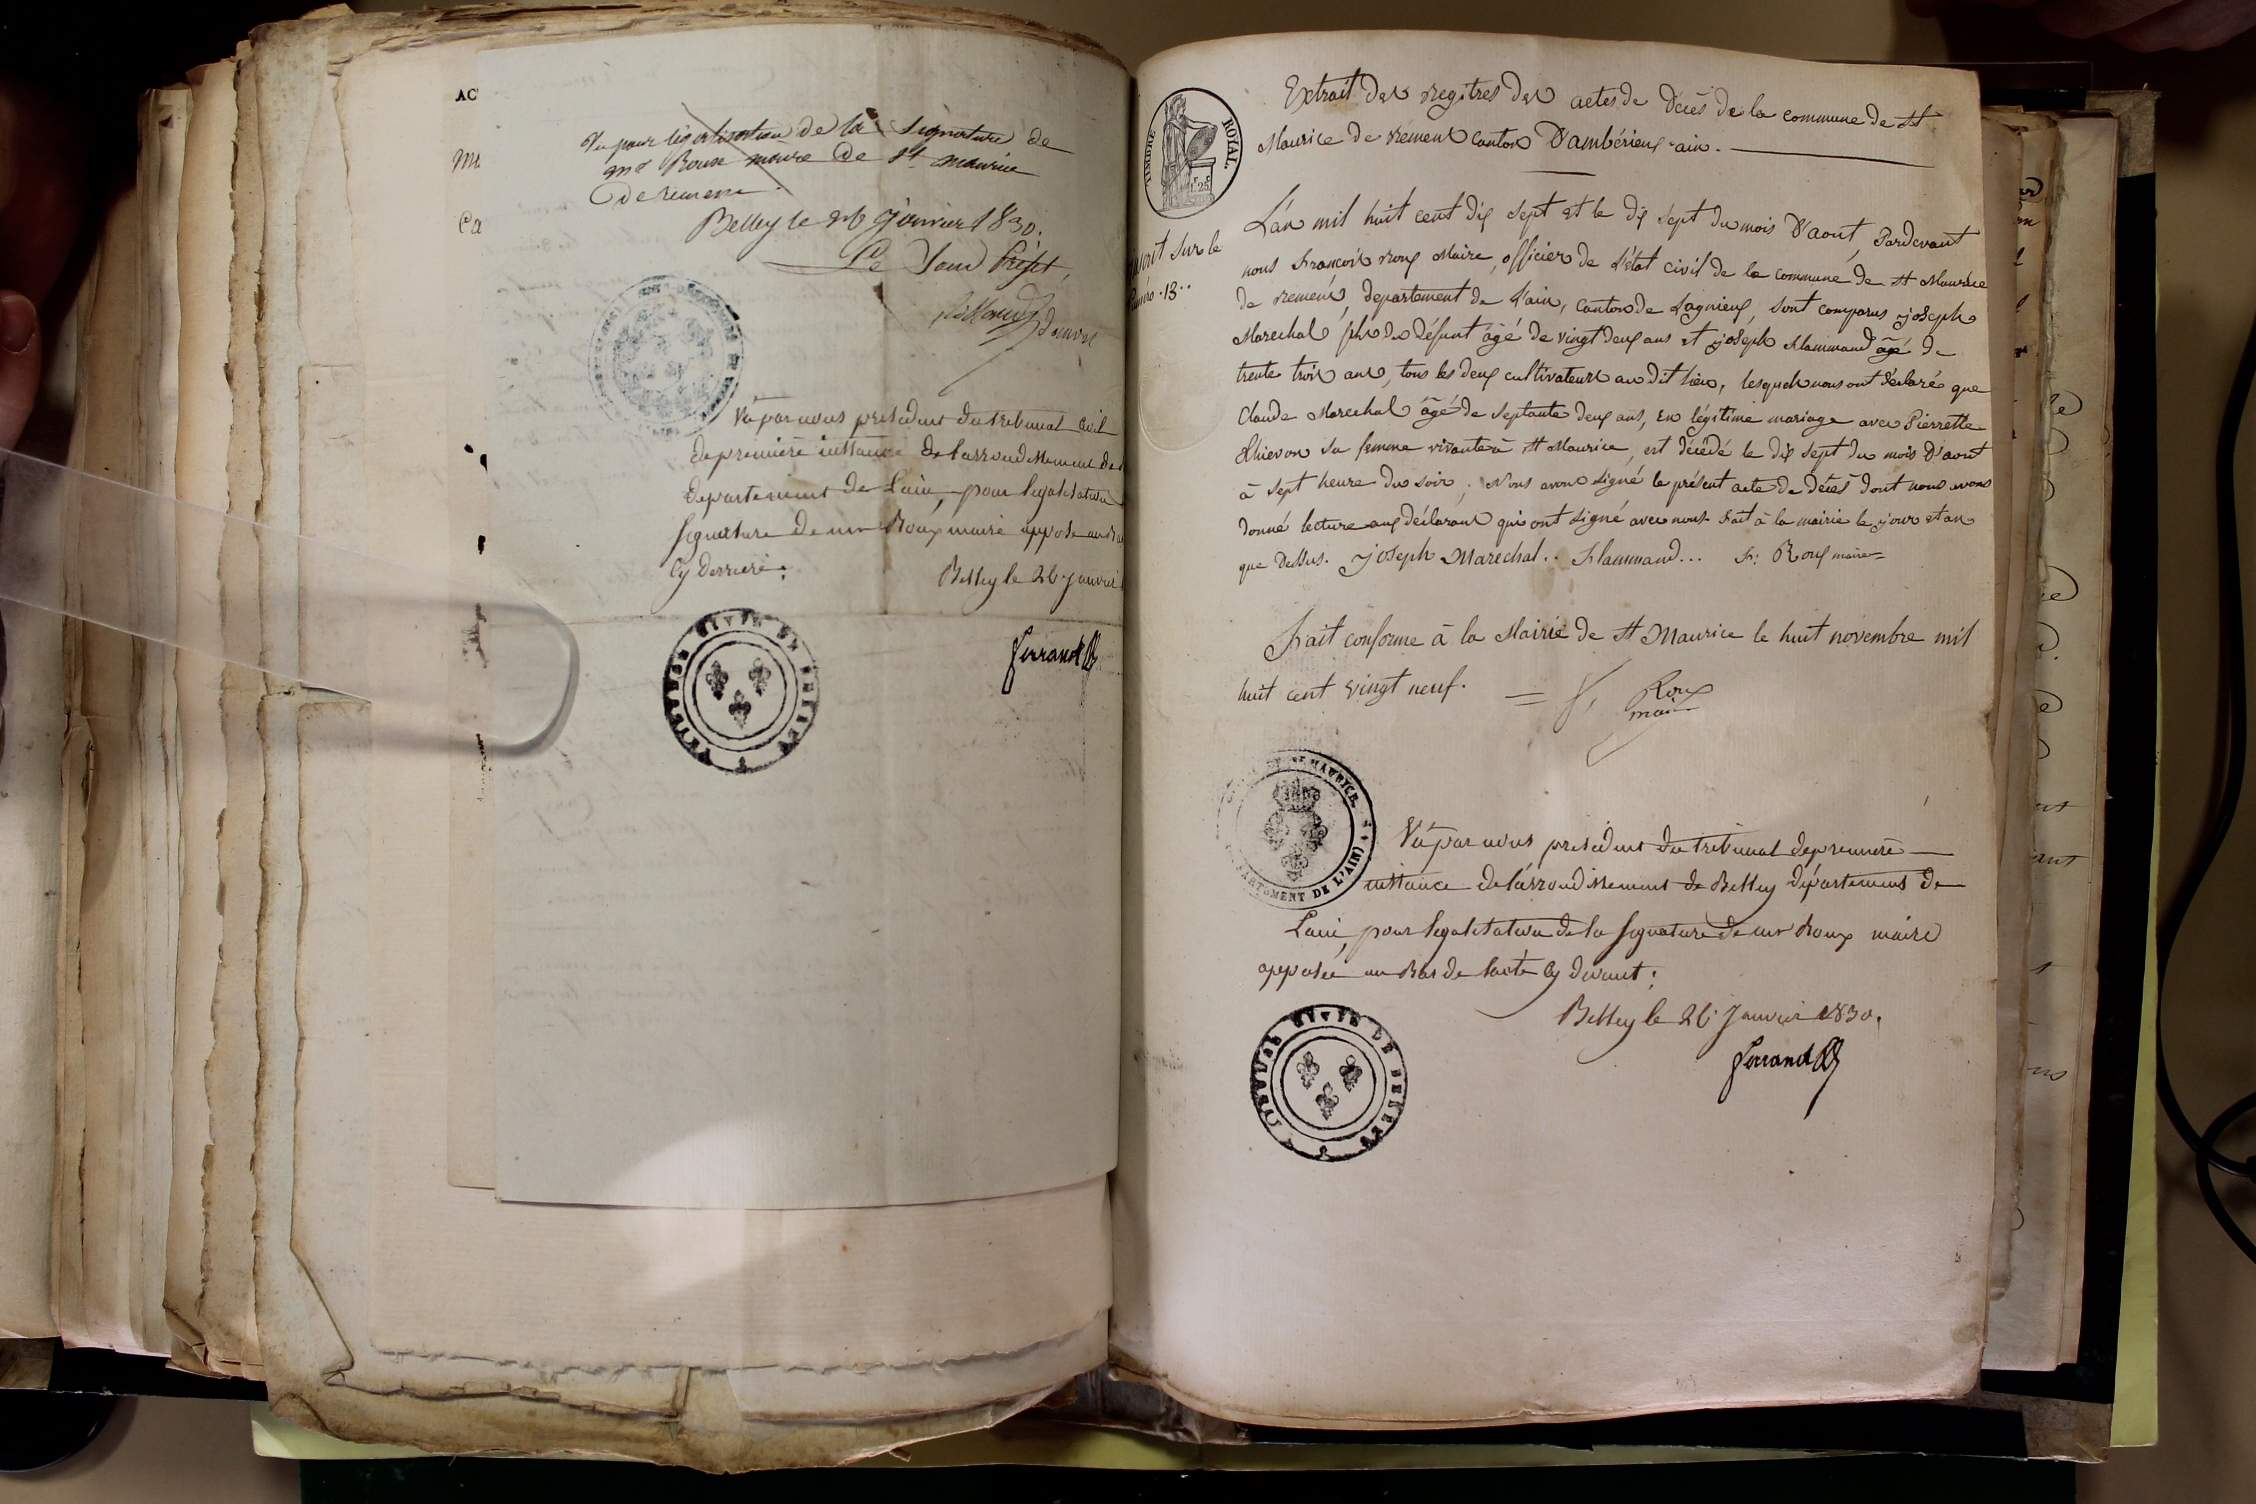 AC
Vu pour légalisation de la Signature de
mr Roux maire de St maurice
de remens.
Belley le 26 Janvier 1830.
Le Sous Préfet,
Vu par nous président du tribunal civil
de première instance de l'arrondissement de
département de L'ain, pour légalisation
signature de mr Roux maire apposée au
Cy derrière:
Belley le 26 Janvier
Ferrand
TRIBUNAL CIVIL DE BELLEY
Mi
Ca
Extrait des Regitres des actes de Décès de la commune de St
Maurice de Rémens Canton D'ambérieux ain.
TIMBRE ROYAL
1F 25C
sur le
Numéro .13..
L'an mil huit cent dix sept et le dix sept du mois D'aout, Pardevant
nous François Roux Maire, officier de L'état civil de la commune de St Maurice
de Remens, département de L'ain, canton de Lagnieux, sont comparus joseph
Marechal fils de défunt âgé de vingt deux ans et joseph Flammand âgé de
trente trois ans, tous les deux cultivateurs au dit lieu, lesquels nous ont déclaré que
Claude Marechal âgé de septante deux ans, en légitime mariage avec Pierrette
Thievon sa femme vivante à St Maurice, est décédé le dix sept du mois D'aout
à sept heure du soir; Nous avons signé le présent acte de décès dont nous avons
donné lecture aux déclarans qui ont signé avec nous. Fait à la mairie le jour et an
que dessus. joseph Marechal.. Flammand... Fs: Roux maire=
Fait conforme à la Mairie de St Maurice le huit novembre mil
huit cent vingt neuf. = F, Roux
maire
ST MAURICE
DÉPARTEMENT DE L'AIN
Vu par nous président du tribunal de première
instance de l'arrondissement de Belley département de
L'ain, pour légalisation de la signature de mr Roux maire
apposée au Bas de l'acte Cy devant;
Belley le 26 Janvier 1830.
Ferrand
TRIBUNAL CIVIL DE BELLEY